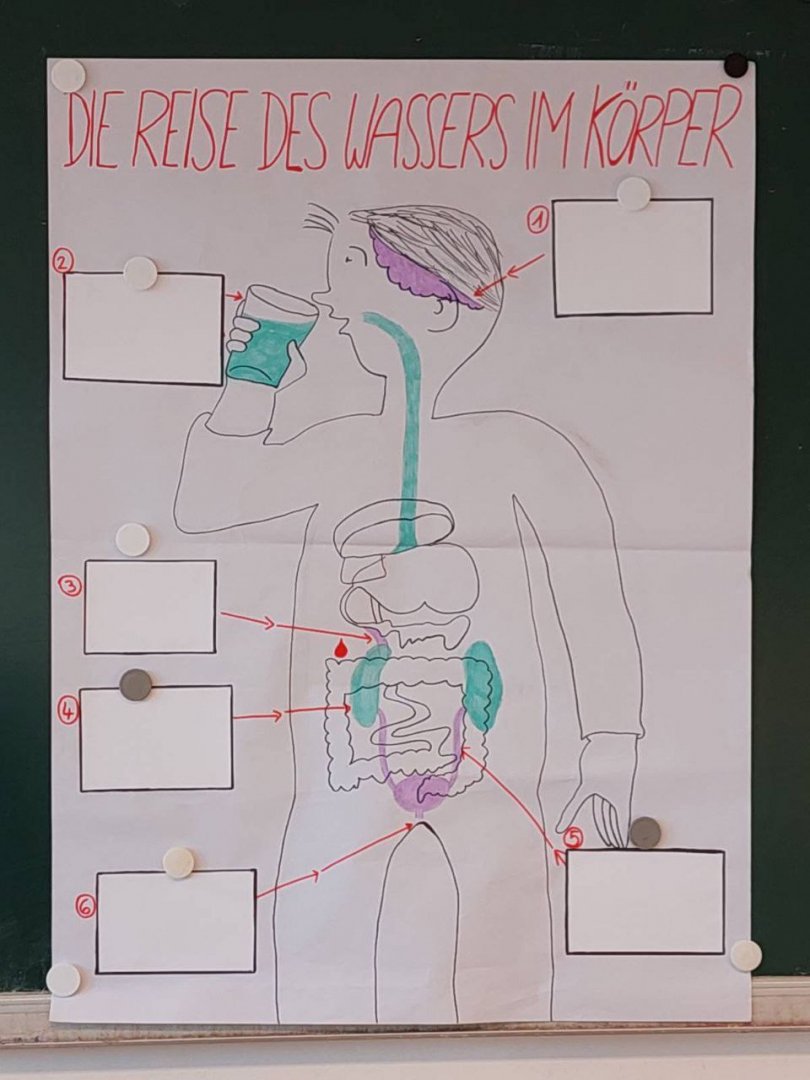 DIE REISE DES WASSERS IM KÖRPER
1
2
3
4
5
6